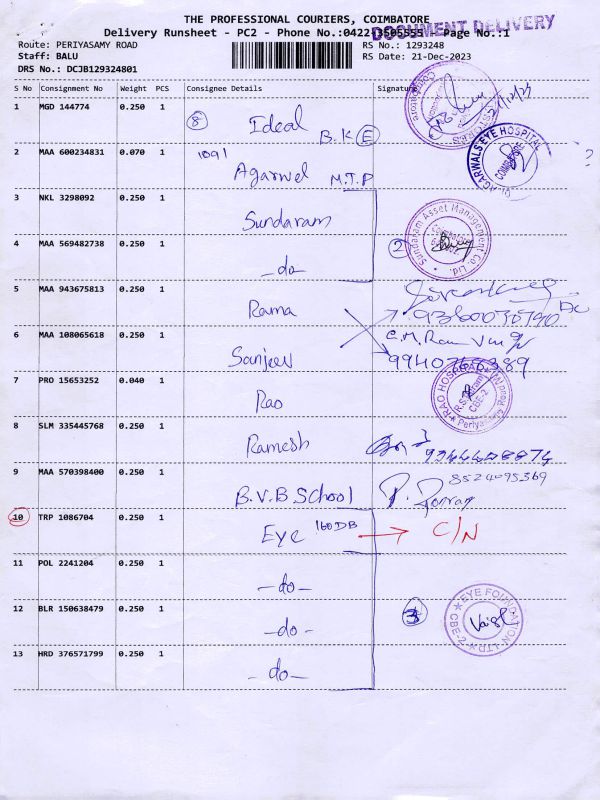 THE PROFESSIONAL COURIERS, COIMBATORE
DOCUMENT DELIVERY
Delivery Runsheet - PC2 - Phone No.:0422-3505555 Page No.:1
Route: PERIYASAMY ROAD
RS No.: 1293248
Staff: BALU
RS Date: 21-Dec-2023
DRS No.: DCJB129324801
S No Consignment No Weight PCS Consignee Details Signature
1 MGD 144774 0.250 1 Ideal B.K E
2 MAA 600234831 0.070 1 1091 Agarwel M.T.P
AGARWALS EYE HOSPITAL
3 NKL 3298092 0.250 1 Sundaram
Sundaram Asset Management Co. Ltd.
4 MAA 569482738 0.250 1 -do- 2
5 MAA 943675813 0.250 1 Rama
6 MAA 108065618 0.250 1 Sanjeev
7 PRO 15653252 0.040 1 Rao
RAO HOSPITAL
CBE-2
8 SLM 335445768 0.250 1 Ramesh
9 MAA 570398400 0.250 1 B.V.B School 8524095369
10 TRP 1086704 0.250 1 Eye 160 DB → C/N
11 POL 2241204 0.250 1 -do-
12 BLR 150638479 0.250 1 -do- 3
EYE FOUNDATION LTD CBE-2
13 HRD 376571799 0.250 1 -do-